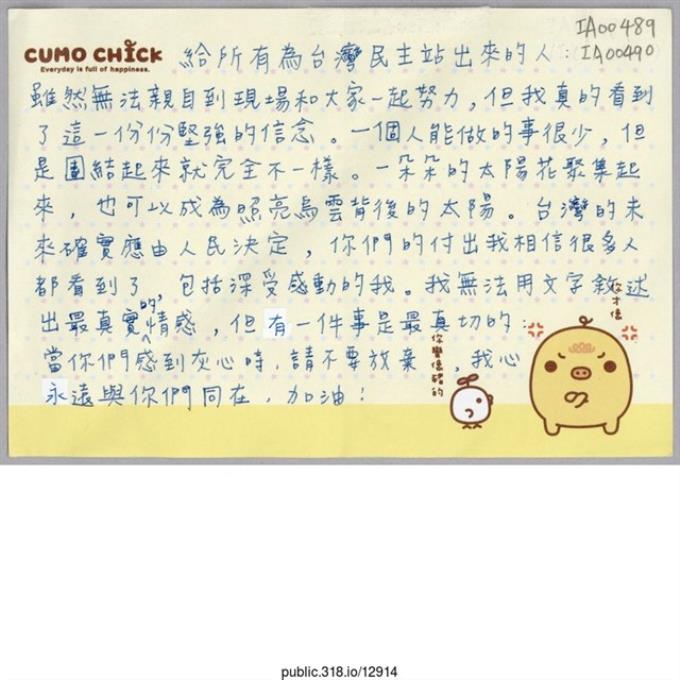 IA00489
IA00490
CUMO CHICK
Everyday is full of happiness.
給所有為台灣民主站出來的人：
雖然無法親自到現場和大家一起努力，但我真的看到
了這一份份堅強的信念。一個人能做的事很少，但
是團結起來就完全不一樣。一朵朵的太陽花聚集起
來，也可以成為照亮烏雲背後的太陽。台灣的未
來確實應由人民決定，你們的付出我相信很多人
都看到了，包括深受感動的我。我無法用文字敘述
出最真實的情感，但有一件事是最真切的：
當你們感到灰心時，請不要放棄，我心
永遠與你們同在，加油！
你才像
你蠻像豬的
public.318.io/12914